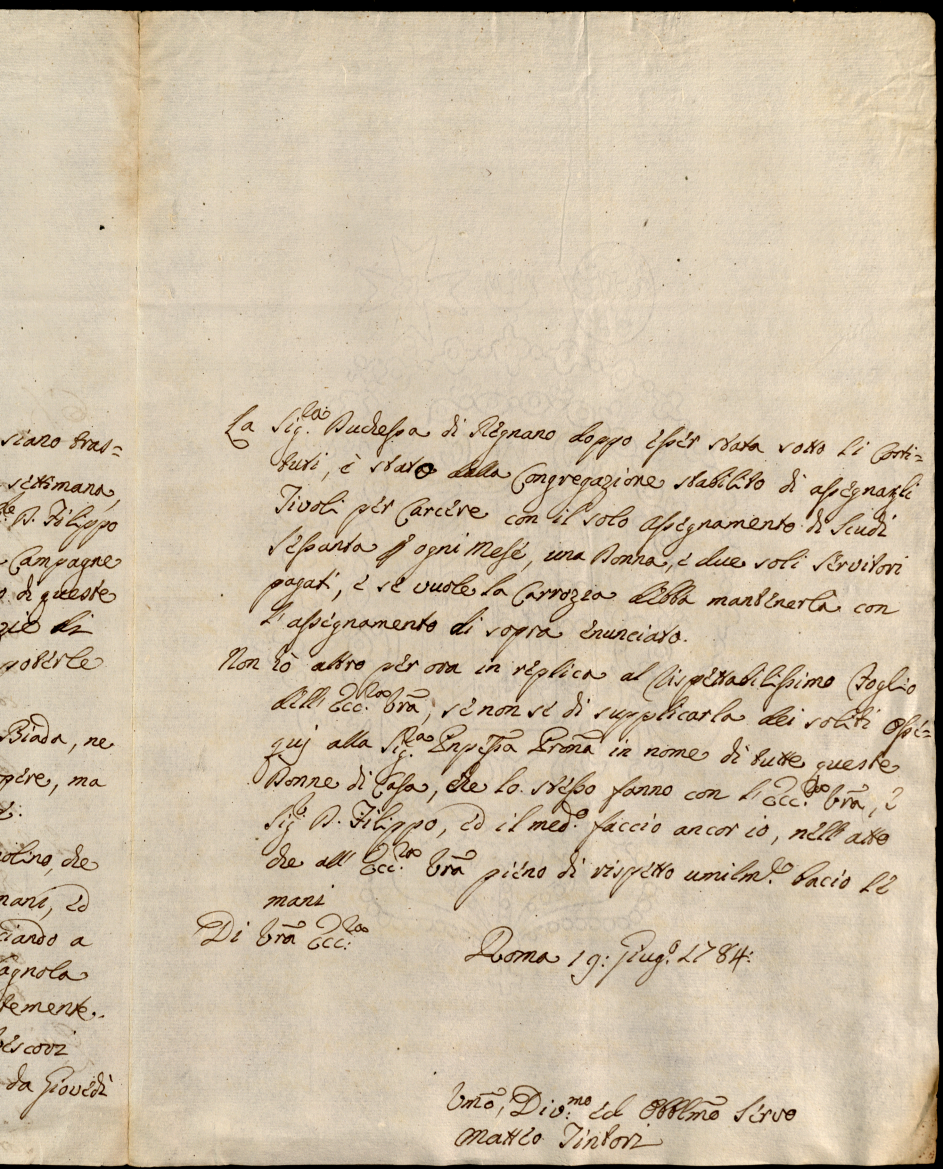 siano tras=
settimana,
D. Filippo
Campagne
di queste
di
poterle
Biada, ne
ma
che
mani, ed
ciando a
agnola
temente.
vescovi
da Giovedì
La Sig.ra Duchessa di Regnano doppo esser stata sotto li Costi=
tuti, è stato dalla Congregazione stabilito di assegnargli
Tivoli per Carcere con il solo assegnamento di Scudi
Sessanta p ogni Mese, una Donna, e due soli Servitori
pagati, e se vuole la Carrozza debba mantenerla con
l'assegnamento di sopra enunciato.
Non ò altro per ora in replica al rispettabilissimo Foglio
dell'Ecc.za Vrã, se non se di supplicarla dei soliti osse=
quj alla Sig.ra Pnpessa Pròna in nome di tutte queste
Donne di Casa, che lo stesso fanno con l'Ecc.za Vrã, e
Sig.r D. Filippo, ed il med.o faccio ancor io, nell'atto
che all'Ecc.za Vrã pieno di rispetto umilm.e bacio le
mani
Di Vrã Ecc.za
Roma 19: Giug.o 1784:
Vmõ, Div.mo ed Obblmõ Servo
Matteo Tintori